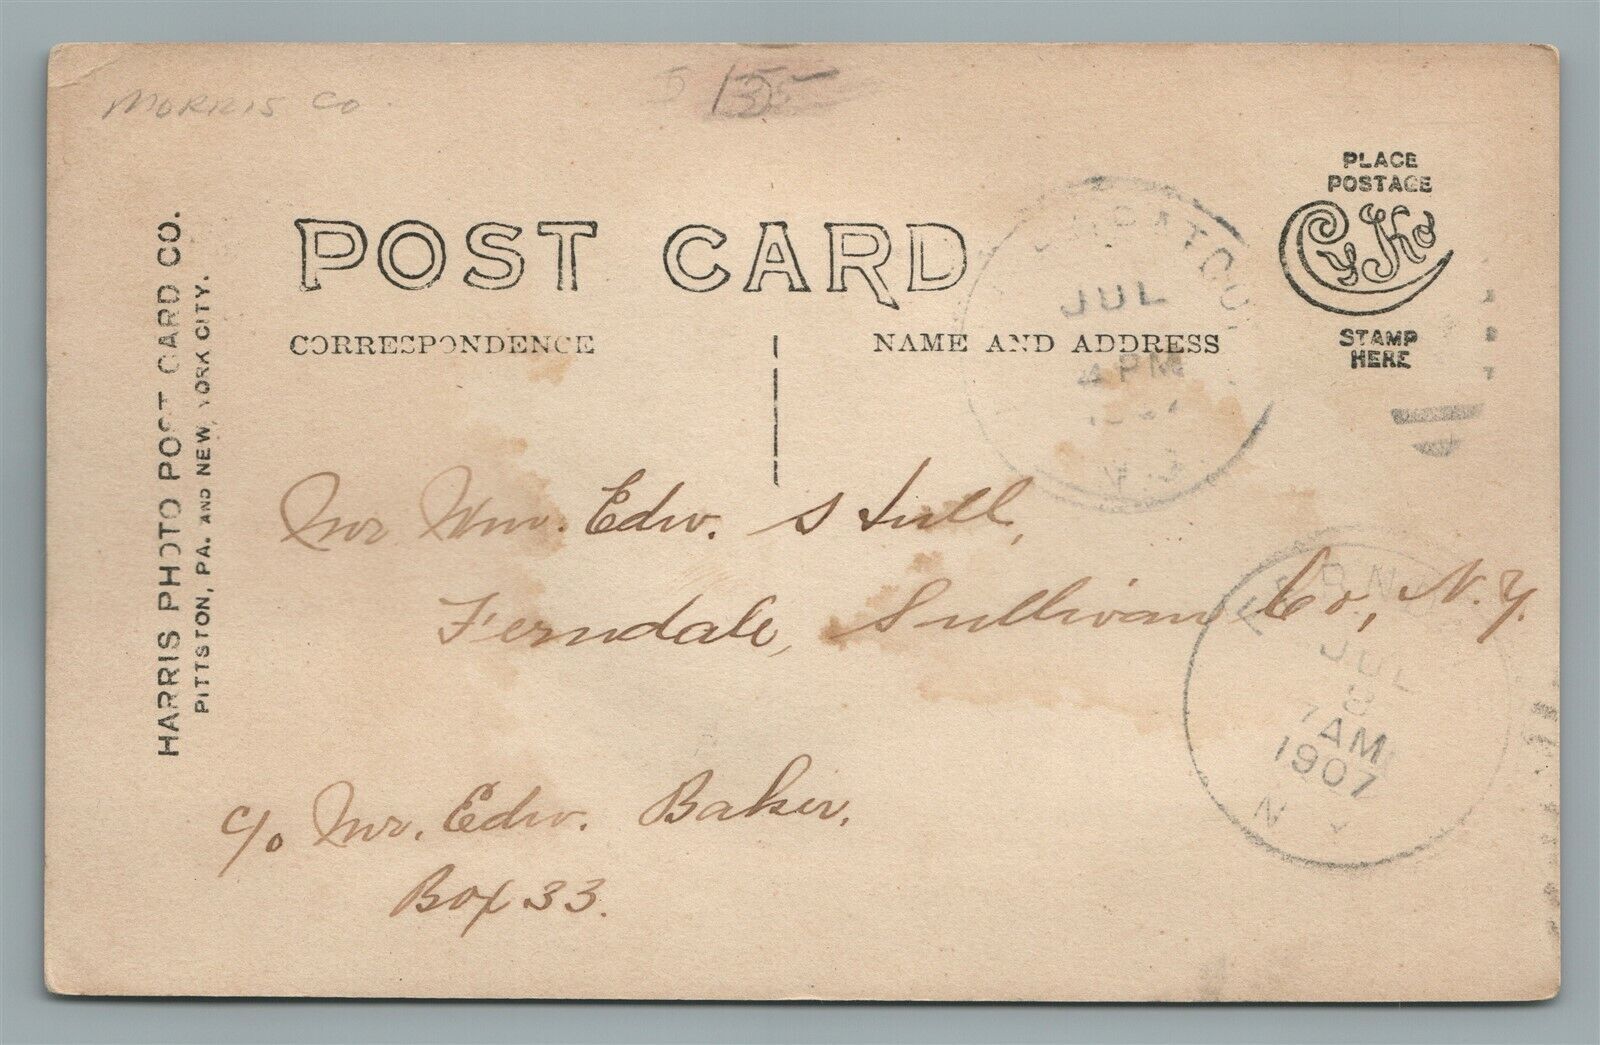 MORRIS CO
HARRIS PHOTO POST CARD CO.
PITTSTON, PA. AND NEW YORK CITY.
POST CARD
CORRESPONDENCE
NAME AND ADDRESS
PLACE
POSTAGE
CyKo
STAMP
HERE
JUL
4 PM
N.J.
Mr Wm. Edw. Stull,
Ferndale, Sullivan Co., N.Y.
c/o Mr. Edw. Baker,
Box 33.
JUL
8
7 AM
1907
N Y